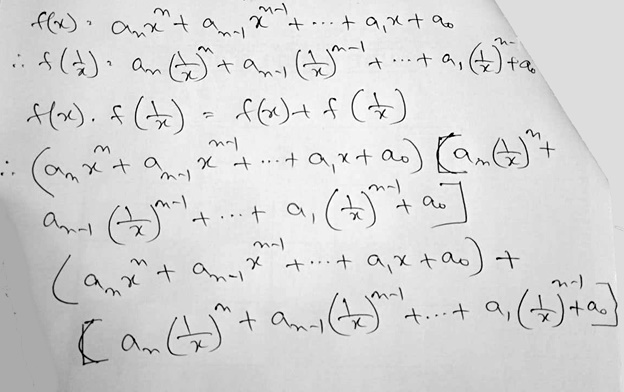 f(x) = aₙxⁿ + aₙ₋₁xⁿ⁻¹ + ⋯ + a₁x + a₀
∴ f(1/x) = aₙ(1/x)ⁿ + aₙ₋₁(1/x)ⁿ⁻¹ + ⋯ + a₁(1/x)ⁿ⁻ + a₀
f(x) . f(1/x) = f(x) + f(1/x)
∴ (aₙxⁿ + aₙ₋₁xⁿ⁻¹ + ⋯ + a₁x + a₀) [aₙ(1/x)ⁿ +
aₙ₋₁(1/x)ⁿ⁻¹ + ⋯ + a₁(1/x)ⁿ⁻¹ + a₀]
(aₙxⁿ + aₙ₋₁xⁿ⁻¹ + ⋯ + a₁x + a₀) +
[aₙ(1/x)ⁿ + aₙ₋₁(1/x)ⁿ⁻¹ + ⋯ + a₁(1/x)ⁿ⁻¹ + a₀]